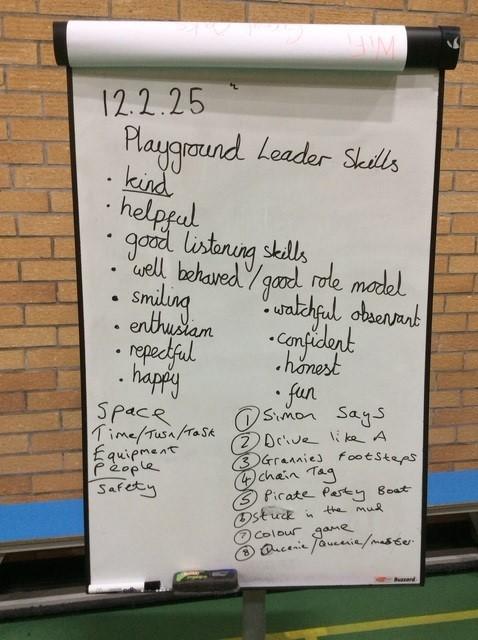 WiFi
12.2.25
Playground Leader Skills
• kind
• helpful
• good listening skills
• well behaved / good role model
• smiling
• enthusiasm
• repectful
• happy
• watchful observant
• confident
• honest
• fun
Space
Time/Turn/Task
Equipment
People
Safety
① Simon Says
② Drive like A
③ Grannies Footsteps
④ chain Tag
⑤ Pirate Party Boat
⑥ Stuck in the mud
⑦ Colour game
⑧ Queenie/Queenie/master
Buzzard